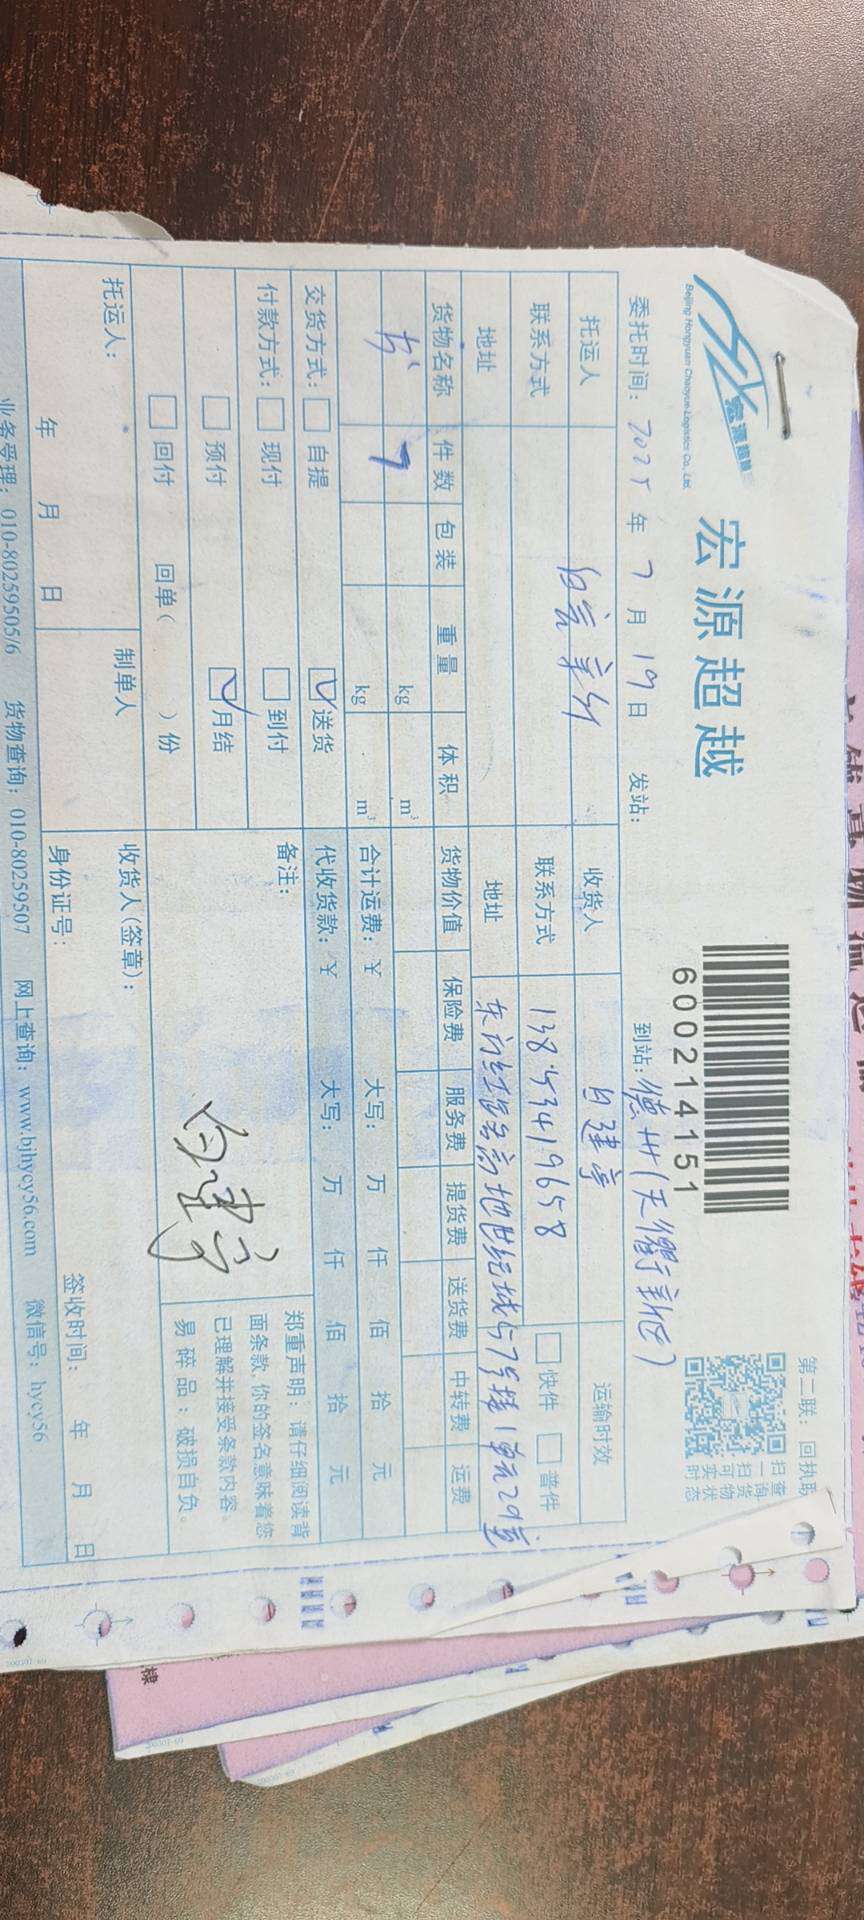 宏源超越
Beijing Hongyuan Chaoyue Logistics Co., Ltd.
宏源超越
600214151
第二联：回执联
扫一扫可实时
查询货物状态
委托时间：2025年7月19日 发站： 到站：德州(天衢新区)
托运人 收货人 白建亭 运输时效
联系方式 联系方式 13853419658 快件 普件
地址 地址 东方红路云高地世纪城57号楼1单元29室
货物名称 件数 包装 重量 体积 货物价值 保险费 服务费 提货费 送货费 中转费 运费
书 7 kg m³
kg m³ 合计运费：￥ 大写： 万 仟 佰 拾 元
交货方式： 自提 送货 代收货款：￥ 大写： 万 仟 佰 拾 元
付款方式： 现付 到付 备注：
预付 月结
回付 回单( )份
白建亭
郑重声明：请仔细阅读背
面条款，你的签名意味着您
已理解并接受条款内容。
易碎品：破损自负。
托运人： 制单人 收货人(签章)：
年 月 日 身份证号： 签收时间： 年 月 日
业务受理：010-80259505/6 货物查询：010-80259507 网上查询：www.bjhycy56.com 微信号：hycy56